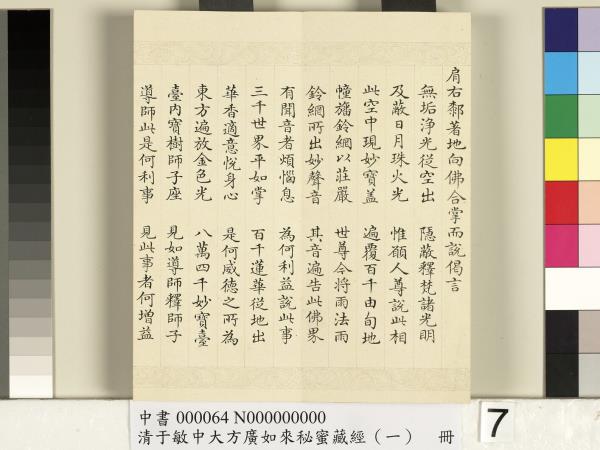 肩右膝著地向佛合掌而說偈言
無垢淨光從空出　隱蔽釋梵諸光明
及蔽日月珠火光　惟願人尊說此相
此空中現妙寶蓋　遍覆百千由旬地
幢旛鈴網以莊嚴　世尊今將雨法雨
鈴網所出妙聲音　其音遍告此佛界
有聞音者煩惱息　為何利益說此事
三千世界平如掌　百千蓮華從地出
華香適意悅身心　是何威德之所為
東方遍放金色光　八萬四千妙寶臺
臺內寶樹師子座　見如導師釋師子
導師此是何利事　見此事者何增益
7
中書 000064 N000000000
清于敏中大方廣如來秘蜜藏經（一）　冊